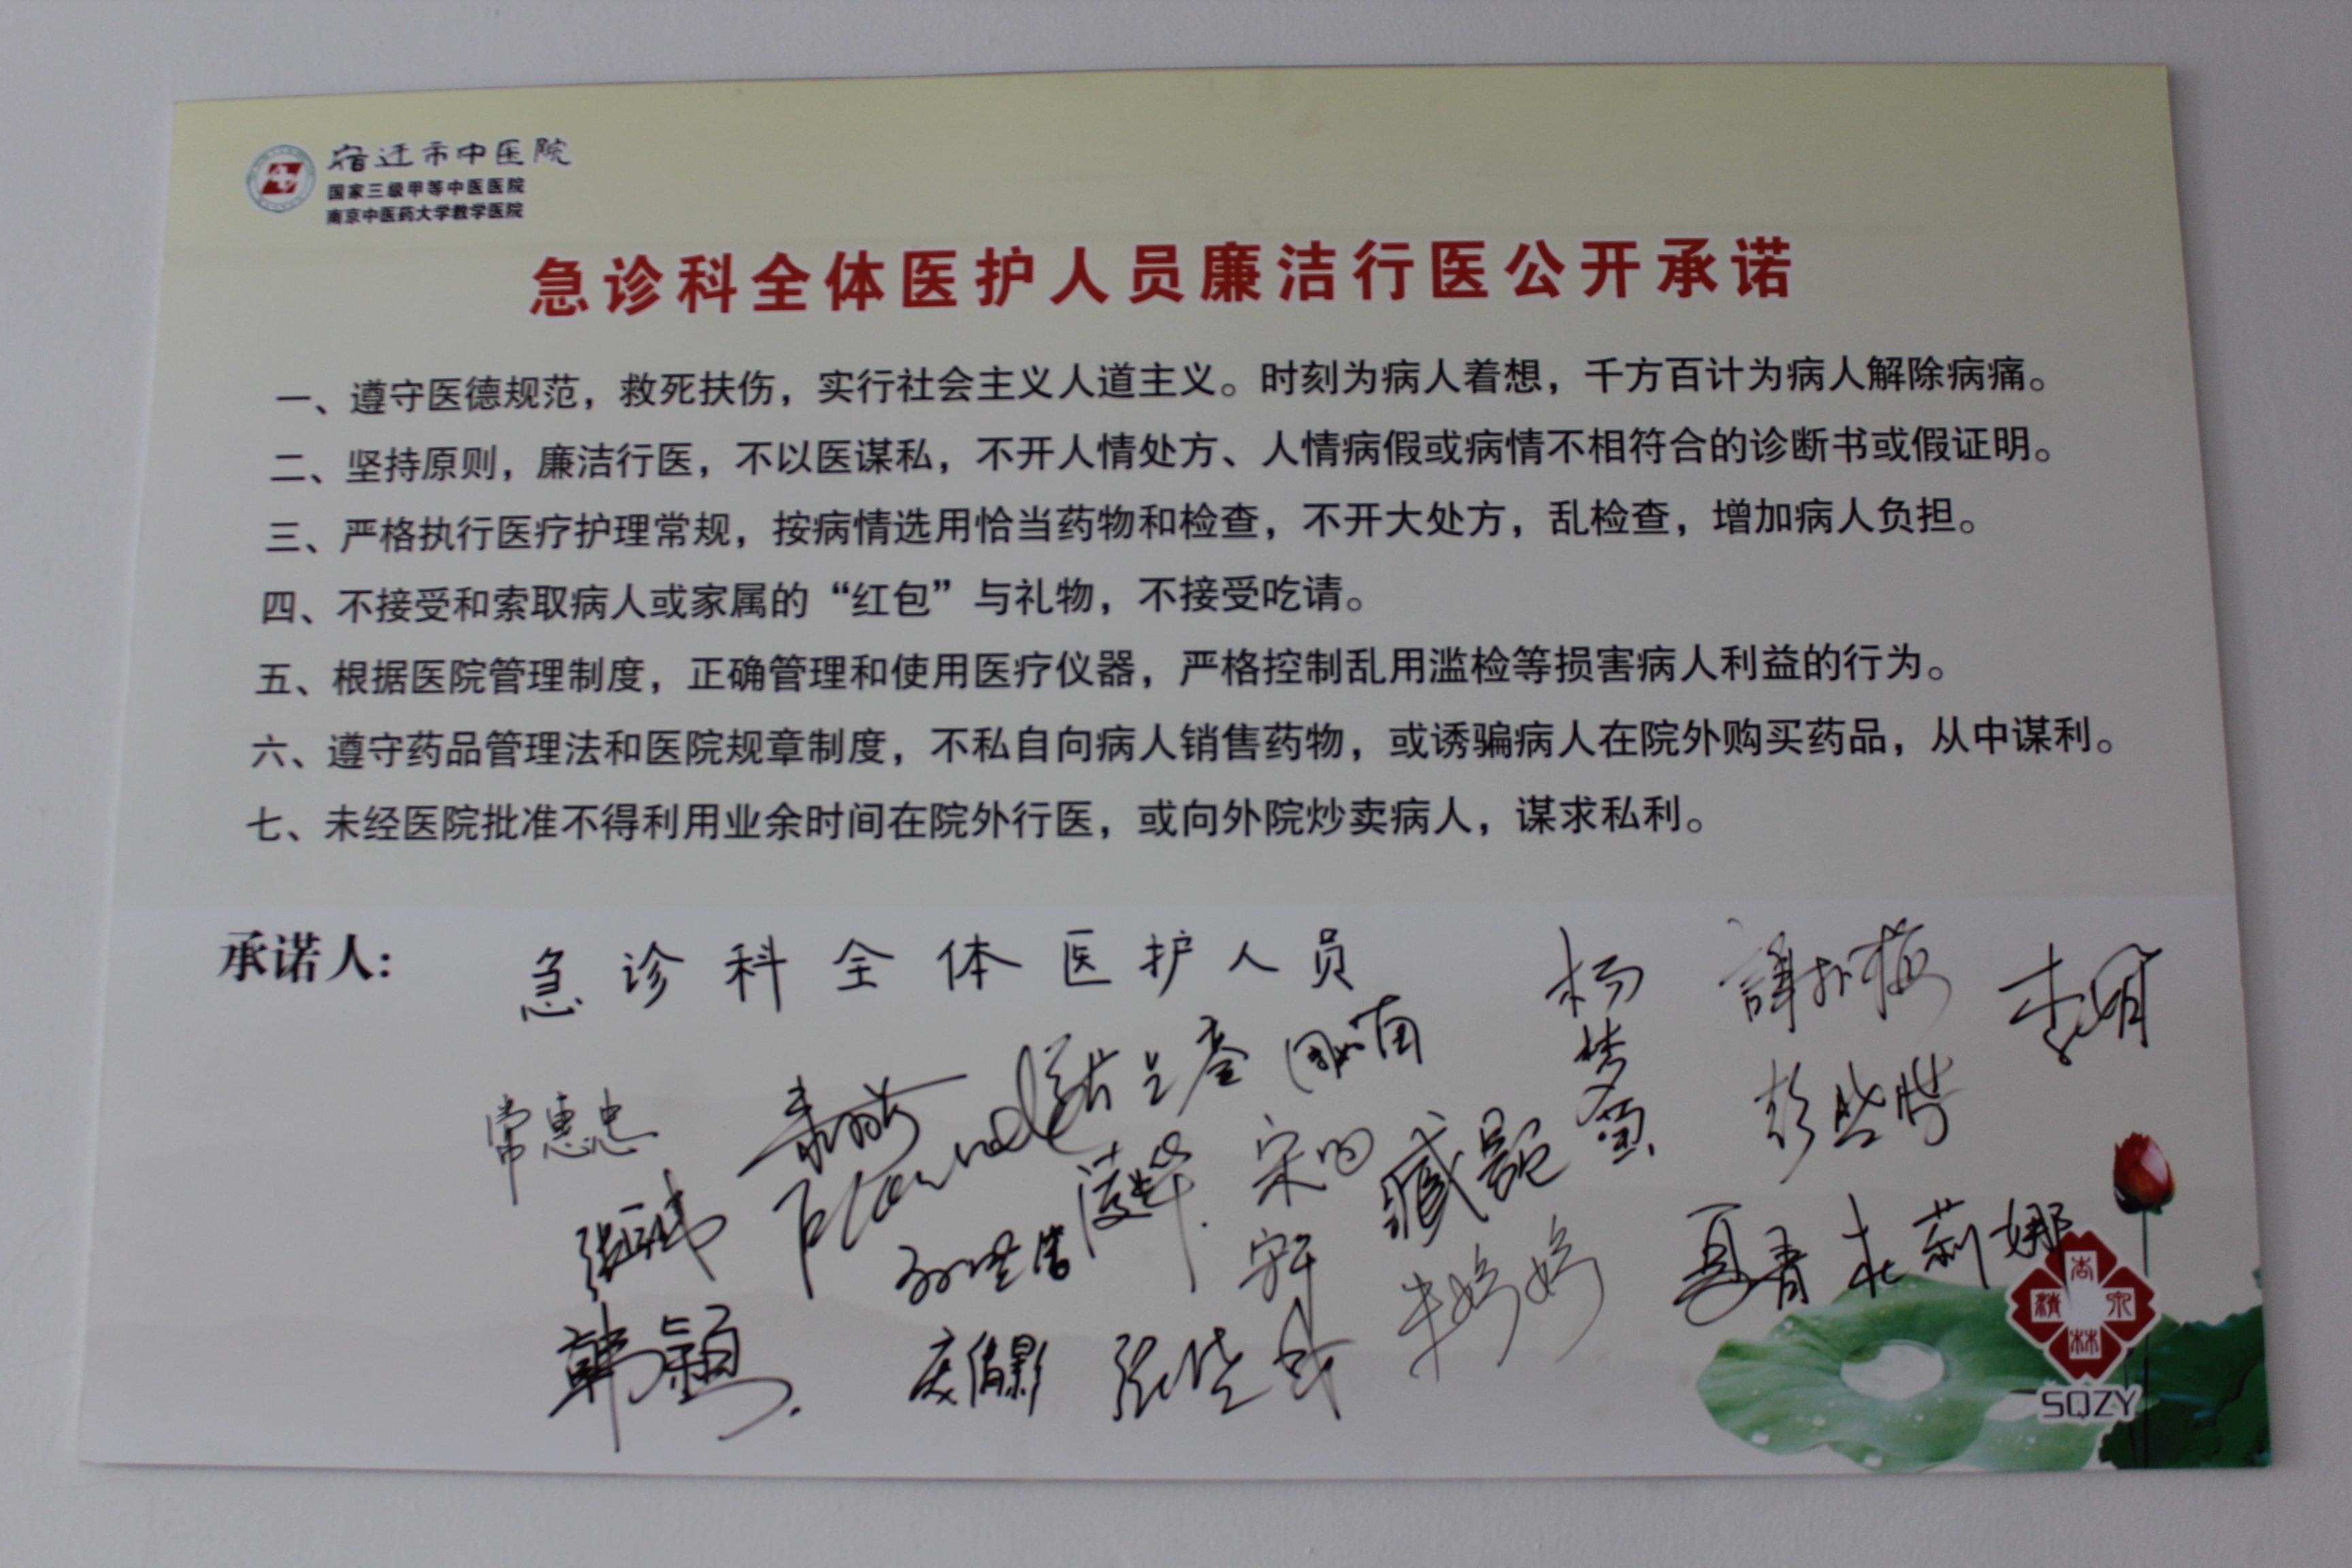 宿迁市中医院
国家三级甲等中医医院
南京中医药大学教学医院
急诊科全体医护人员廉洁行医公开承诺
一、遵守医德规范，救死扶伤，实行社会主义人道主义。时刻为病人着想，千方百计为病人解除病痛。
二、坚持原则，廉洁行医，不以医谋私，不开人情处方、人情病假或病情不相符合的诊断书或假证明。
三、严格执行医疗护理常规，按病情选用恰当药物和检查，不开大处方，乱检查，增加病人负担。
四、不接受和索取病人或家属的“红包”与礼物，不接受吃请。
五、根据医院管理制度，正确管理和使用医疗仪器，严格控制乱用滥检等损害病人利益的行为。
六、遵守药品管理法和医院规章制度，不私自向病人销售药物，或诱骗病人在院外购买药品，从中谋利。
七、未经医院批准不得利用业余时间在院外行医，或向外院炒卖病人，谋求私利。
承诺人：急诊科全体医护人员
常惠忠
杨梦茵
韩颖
朱婷婷
夏青
杜莉娜
杏林
SQZY